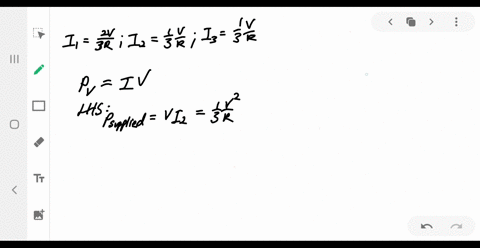 I₁ = 2V/3R ; I₂ = 1/3 V/R ; I₃ = 1/3 V/R
P_V = IV
LHS:
P_supplied = VI₂ = 1/3 V²/R
Tт